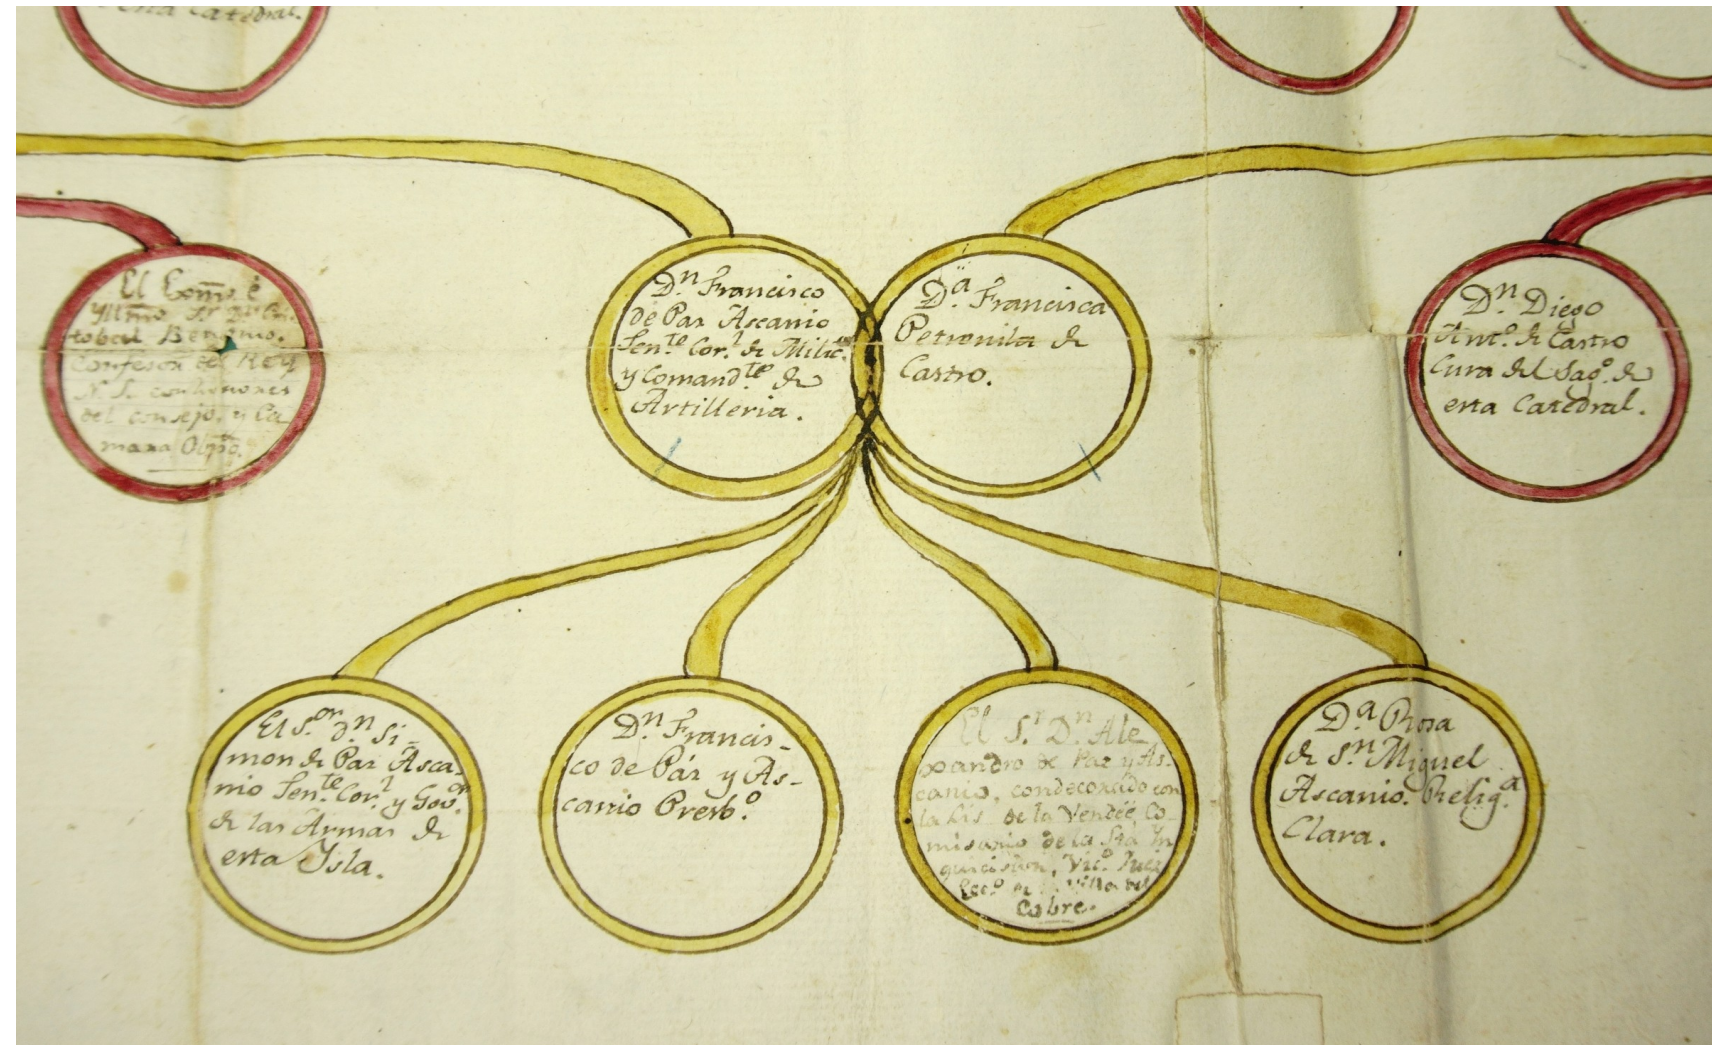 esta Catedral.
El Exmô. è
Yllmô. Sr. Dn. Cris
tobal Bencomo.
Confesor del Rey
N. S. con honores
del consejo, y Ca
mara Obpô.
Dn. Francisco
de Paz Ascanio
Ten.te Cor.l de Milic.as
y Comand.te de
Artilleria.
D.a Francisca
Petronila de
Castro.
Dn. Diego
Ant.o de Castro
Cura del Sag.o de
esta Catedral.
El S.or Dn. Si-
mon de Paz Asca-
nio Ten.te Cor.l y Gov.or
de las Armas de
esta Ysla.
Dn. Francis-
co de Páz y As-
canio Presb.o
El S.r D.n Ale
xandro de Paz y As-
canio, condecorado con
la Lis de la Vendèe, Co-
misario de la Sta In
quicision, Vic.o Juez
Ecc.o de la Villa del
Cobre.
D.a Rosa
de S.n Miguel
Ascanio. Relig.a
Clara.